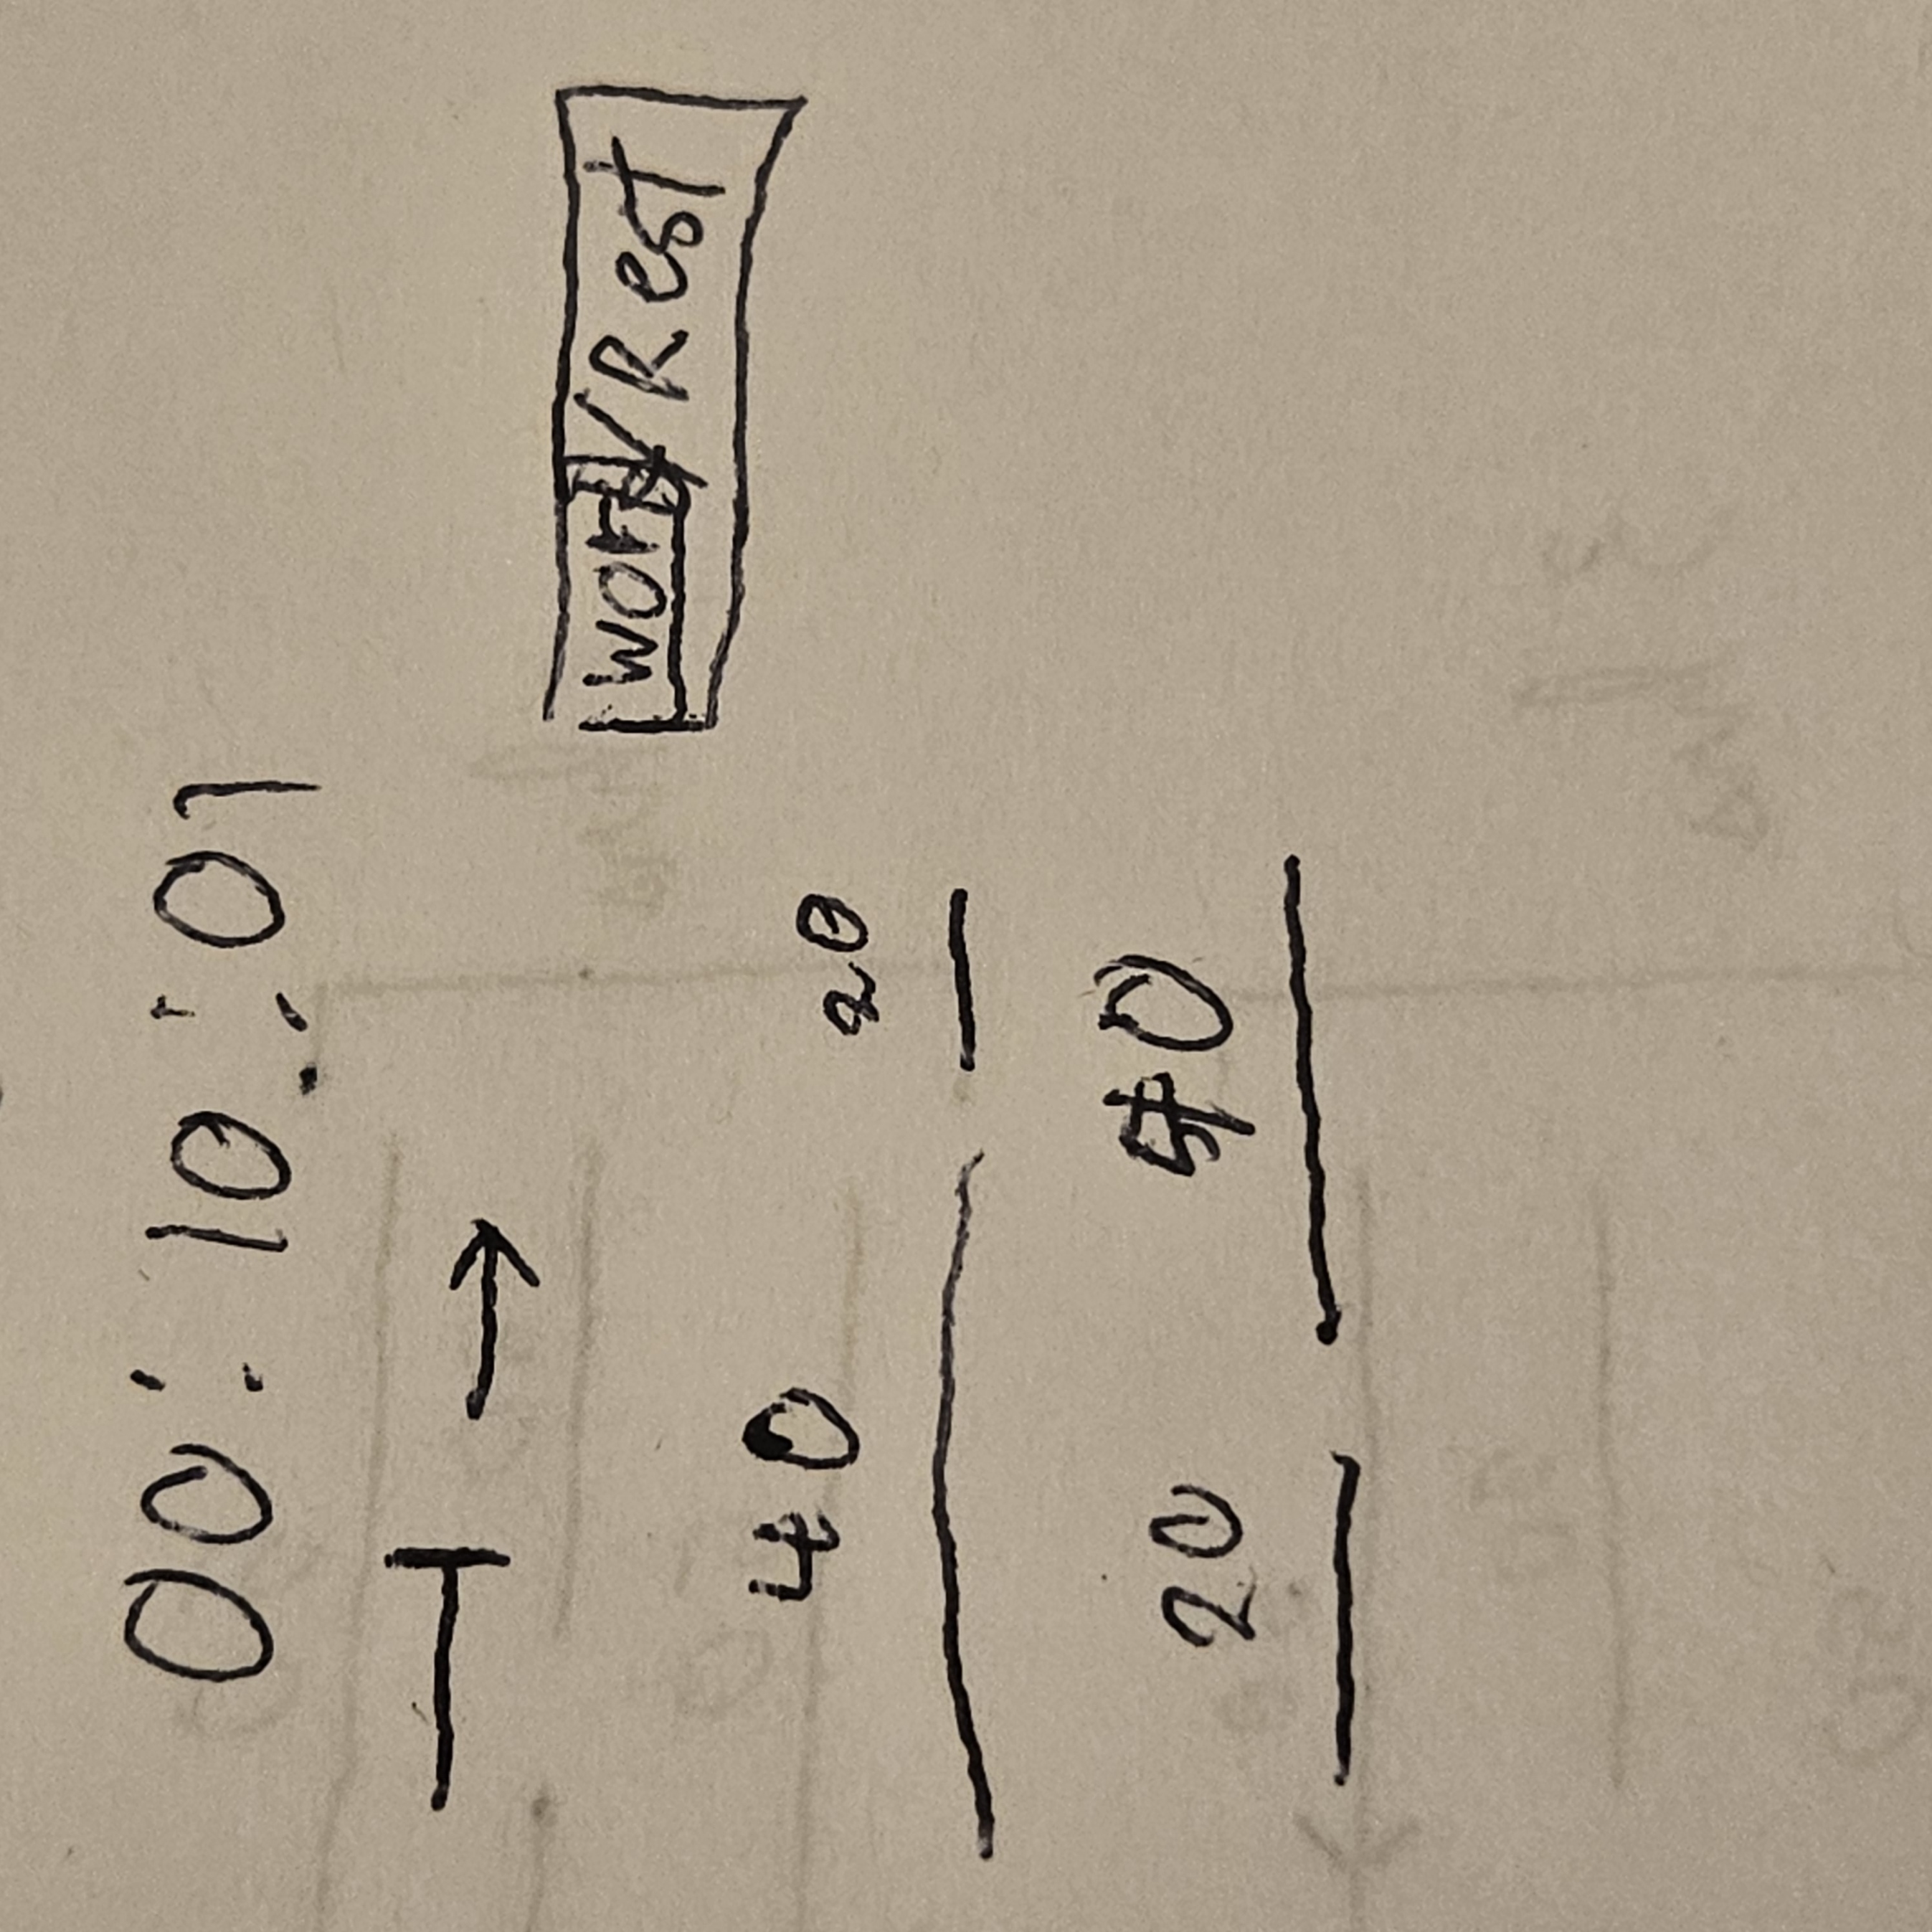 00:10:01
Work/Rest
40 20
20 40